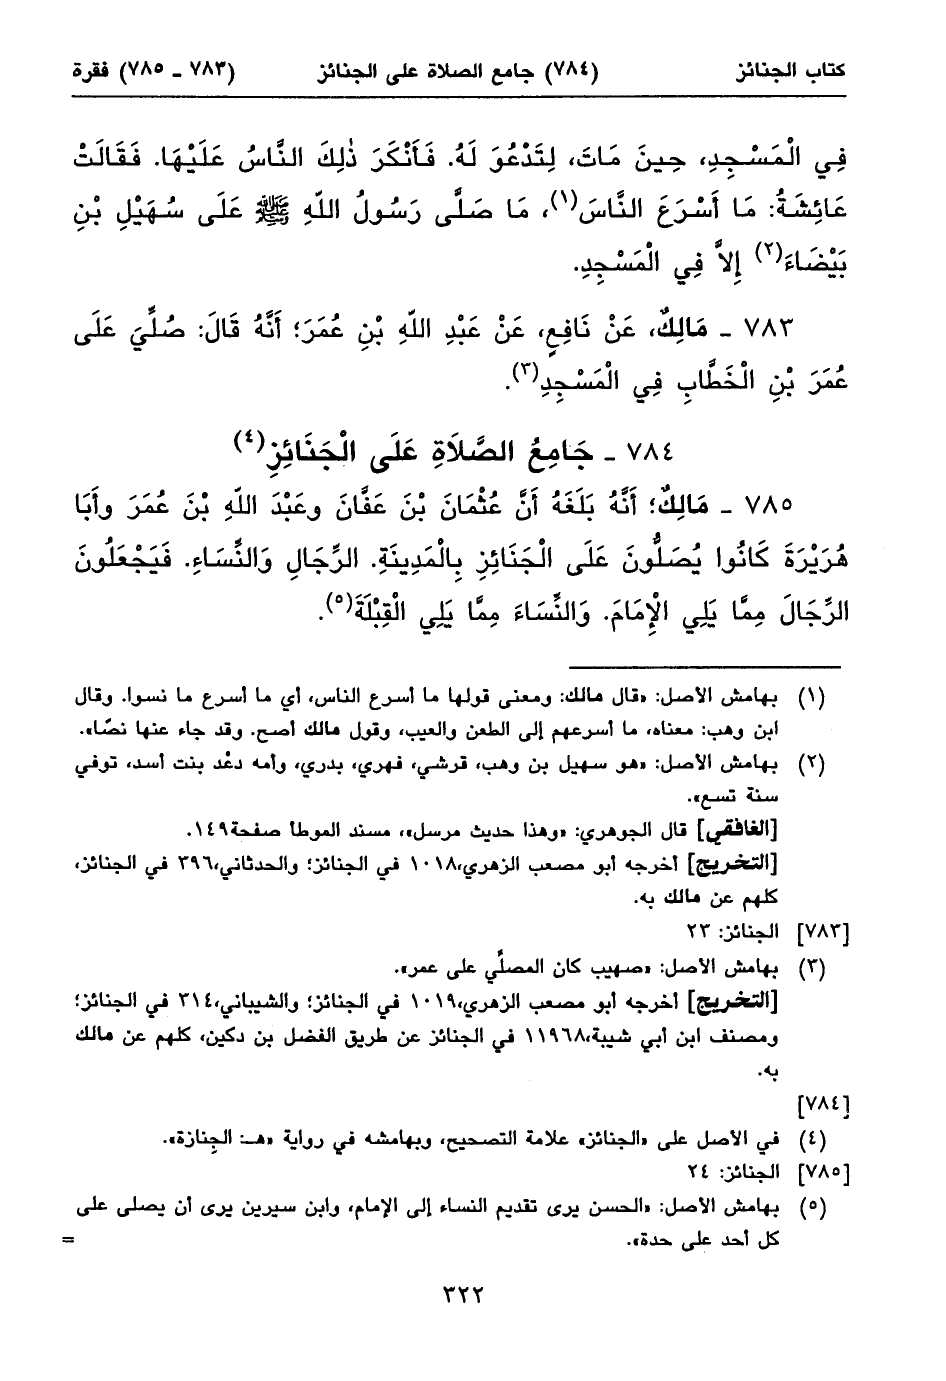 كتاب الجنائز (٧٨٤) جامع الصلاة على الجنائز (٧٨٣ ـ ٧٨٥) فقرة
فِي الْمَسْجِدِ، حِينَ مَاتَ، لِتَدْعُوَ لَهُ. فَأَنْكَرَ ذٰلِكَ النَّاسُ عَلَيْهَا. فَقَالَتْ
عَائِشَةُ: مَا أَسْرَعَ النَّاسَ(١)، مَا صَلَّى رَسُولُ اللّهِ ﷺ عَلَى سُهَيْلِ بْنِ
بَيْضَاءَ(٢) إِلاَّ فِي الْمَسْجِدِ.
٧٨٣ ـ مَالِكٌ، عَنْ نَافِعٍ، عَنْ عَبْدِ اللّهِ بْنِ عُمَرَ؛ أَنَّهُ قَالَ: صُلِّيَ عَلَى
عُمَرَ بْنِ الْخَطَّابِ فِي الْمَسْجِدِ(٣).
٧٨٤ ـ جَامِعُ الصَّلاَةِ عَلَى الْجَنَائِزِ(٤)
٧٨٥ ـ مَالِكٌ؛ أَنَّهُ بَلَغَهُ أَنَّ عُثْمَانَ بْنَ عَفَّانَ وعَبْدَ اللّهِ بْنَ عُمَرَ وأَبَا
هُرَيْرَةَ كَانُوا يُصَلُّونَ عَلَى الْجَنَائِزِ بِالْمَدِينَةِ. الرِّجَالِ وَالنِّسَاءِ. فَيَجْعَلُونَ
الرِّجَالَ مِمَّا يَلِي الْإِمَامَ. وَالنِّسَاءَ مِمَّا يَلِي الْقِبْلَةَ(٥).
(١) بهامش الأصل: «قال مالك: ومعنى قولها ما أسرع الناس، أي ما أسرع ما نسوا. وقال
ابن وهب: معناه، ما أسرعهم إلى الطعن والعيب، وقول مالك أصح. وقد جاء عنها نصّا».
(٢) بهامش الأصل: «هو سهيل بن وهب، قرشي، فهري، بدري، وأمه دعْد بنت أسد، توفي
سنة تسع».
[الغافقي] قال الجوهري: «وهذا حديث مرسل»، مسند الموطأ صفحة١٤٩.
[التخريج] أخرجه أبو مصعب الزهري،١٠١٨ في الجنائز؛ والحدثاني،٣٩٦ في الجنائز،
كلهم عن مالك به.
[٧٨٣] الجنائز: ٢٣
(٣) بهامش الأصل: «صهيب كان المصلِّي على عمر».
[التخريج] أخرجه أبو مصعب الزهري،١٠١٩ في الجنائز؛ والشيباني،٣١٤ في الجنائز؛
ومصنف ابن أبي شيبة،١١٩٦٨ في الجنائز عن طريق الفضل بن دكين، كلهم عن مالك
به.
[٧٨٤]
(٤) في الأصل على «الجنائز» علامة التصحيح، وبهامشه في رواية «هـ: الجِنازة».
[٧٨٥] الجنائز: ٢٤
(٥) بهامش الأصل: «الحسن يرى تقديم النساء إلى الإمام، وابن سيرين يرى أن يصلى على
كل أحد على حدة». =
٣٢٢